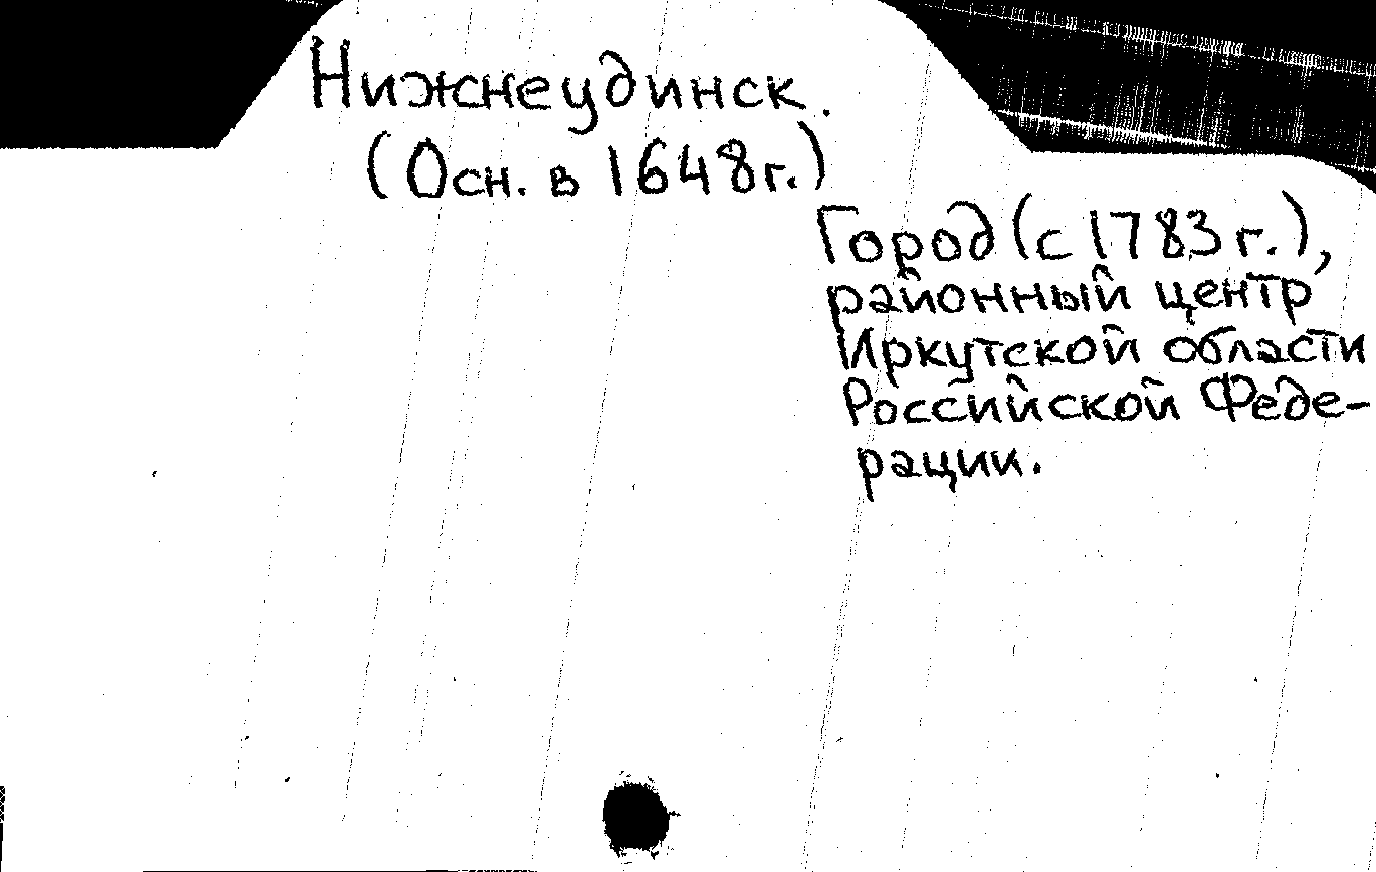 Нижнеудинск.
(Осн. в 1648г.)
Город (с 1783 г.),
районный центр
Иркутской области
Российской Феде-
рации.